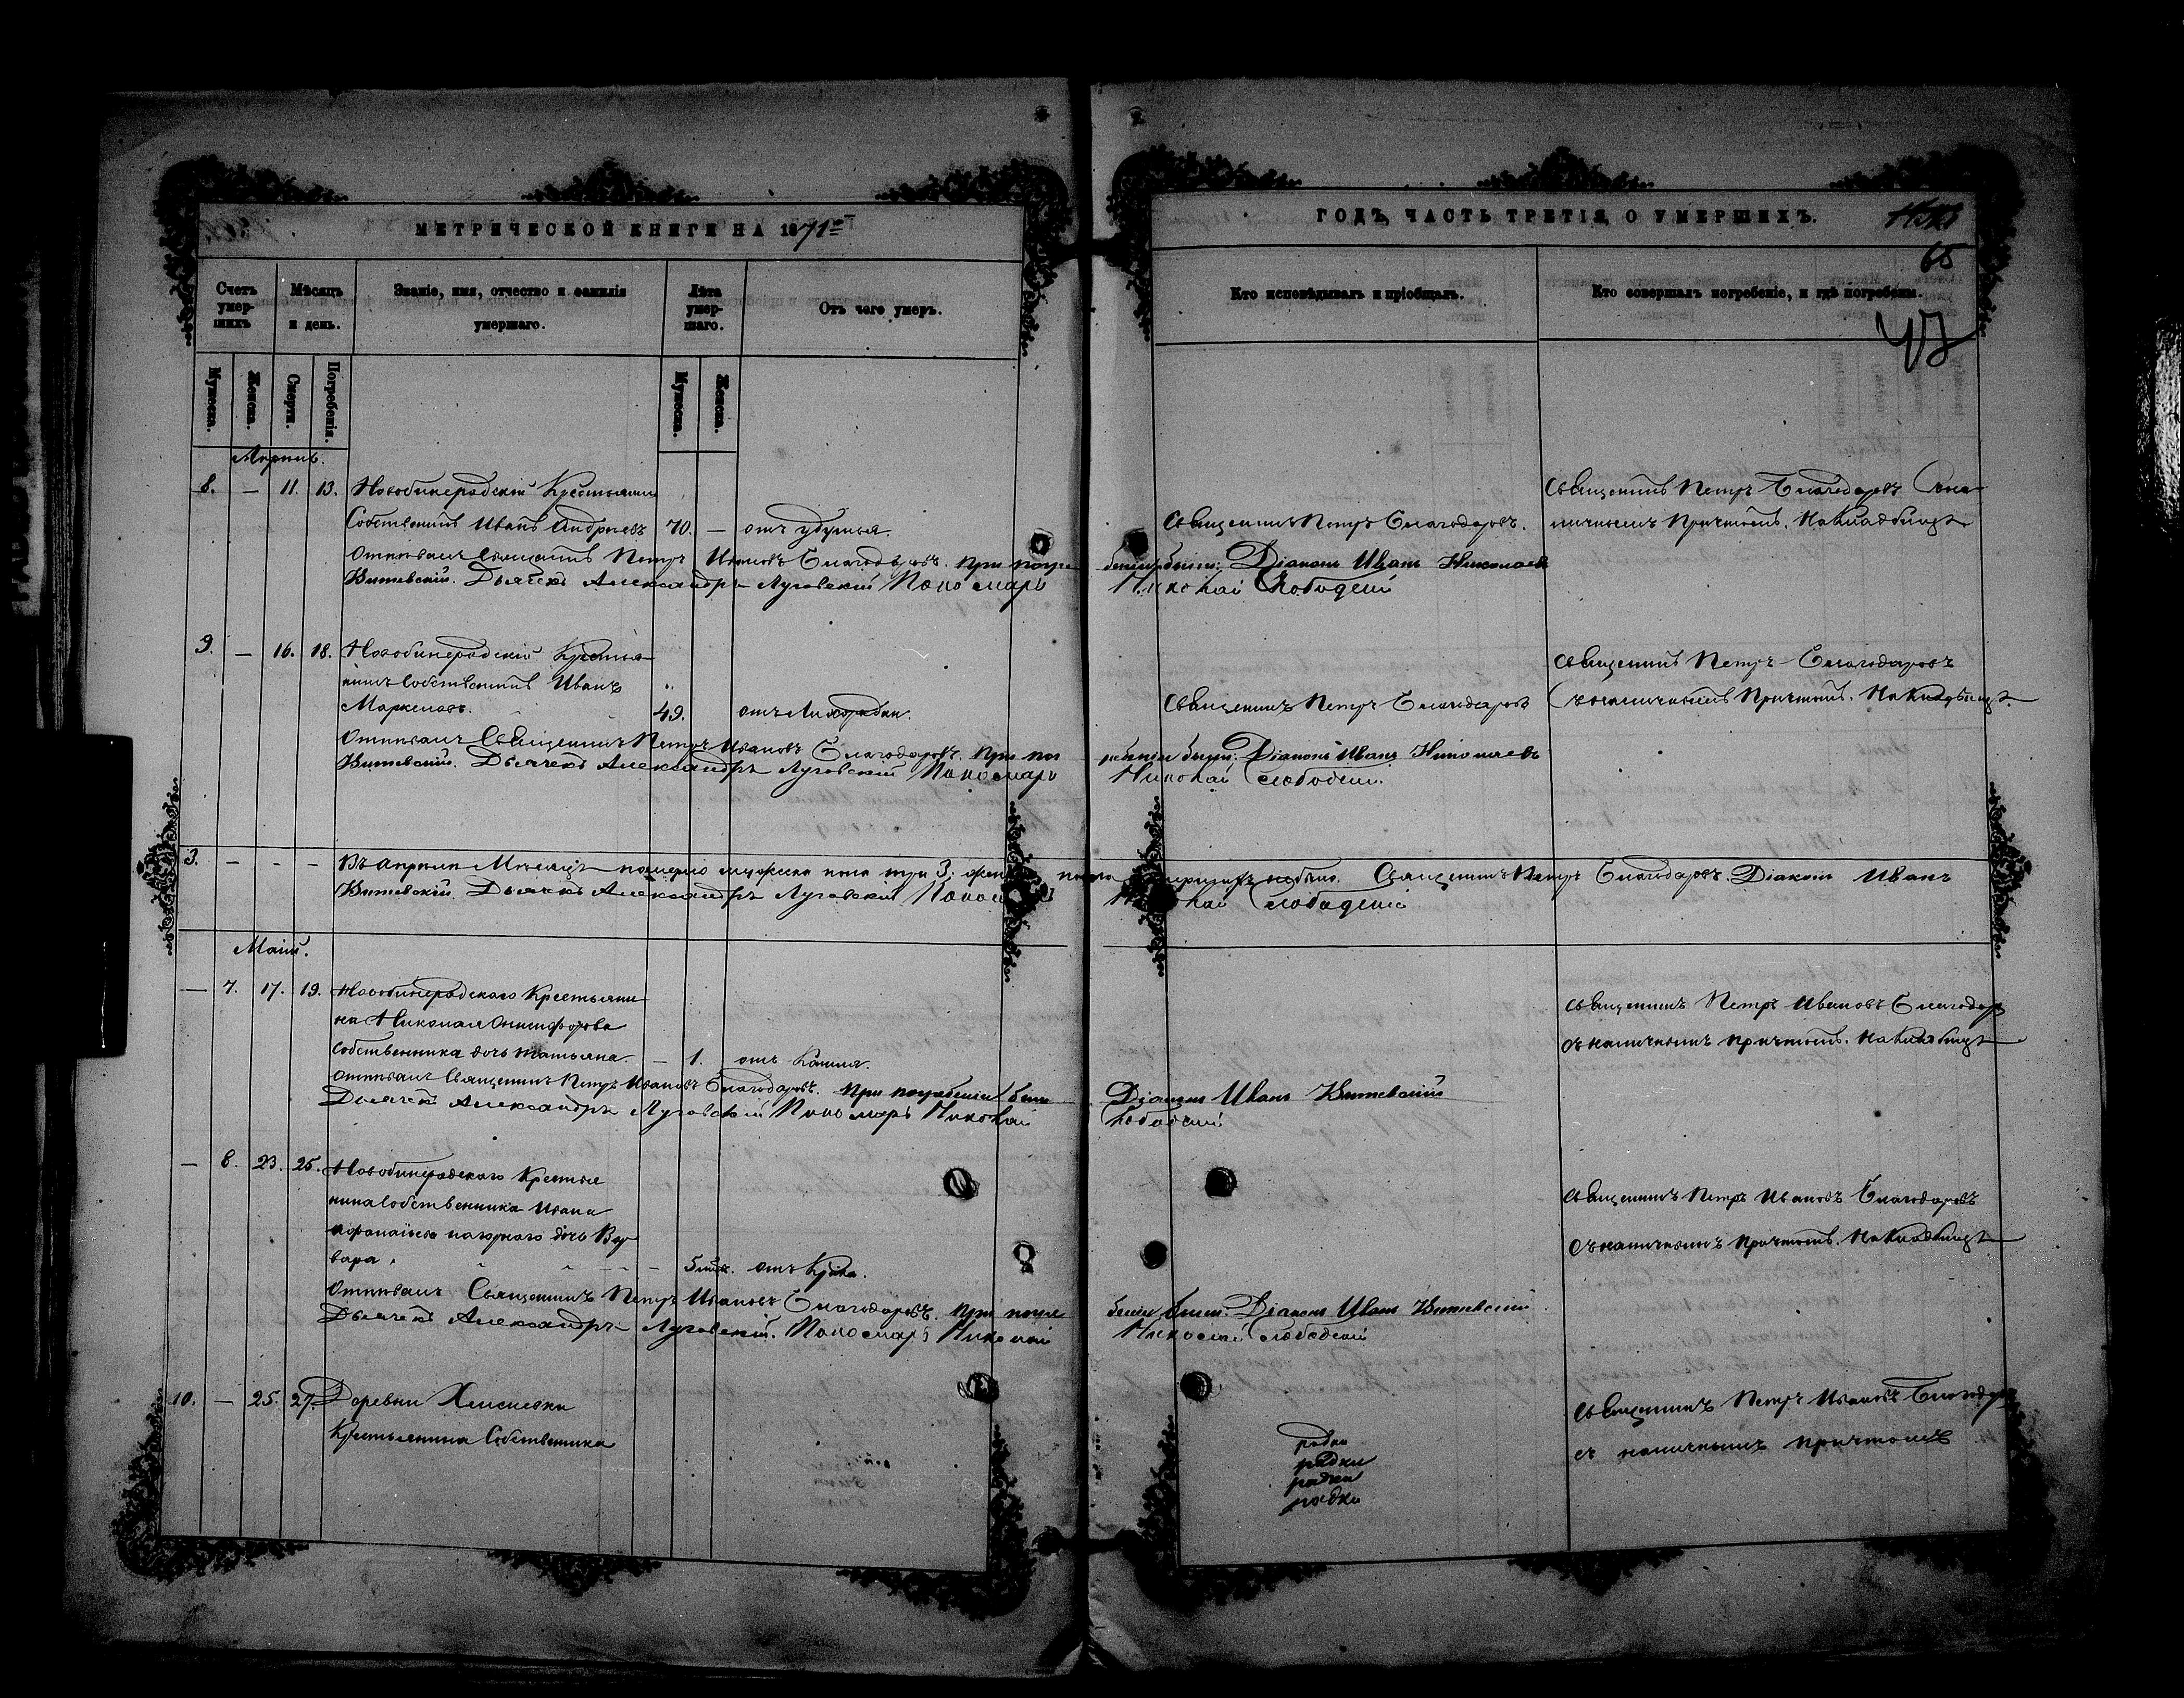 МЕТРИЧЕСКОЙ КНИГИ НА 1871
Счетъ умер-шихъ
Мѣсяцъ и день.
Званіе, имя, отчество и фамилія умершаго.
Лѣта умер-шаго.
Отъ чего умеръ.
Мужеска.
Женска.
Смерти.
Погребенія.
Мужеска.
Женска.
8. — 11. 13.
Крестьянинъ
Собственникъ Иванъ Андреевъ 70. — отъ удушья.
Отпѣвалъ Священникъ Петръ Ивановъ Благодаровъ. при погре
Витевскій. Дьячекъ Александръ Луговскій Пономарь
9. — 16. 18.
Крестья
нинъ Собственникъ Иванъ
Маркеловъ. 49. отъ Лихорадки.
Отпѣвалъ Священникъ Петръ Ивановъ Благодаровъ. При пог
Витевскій. Дьячекъ Александръ Луговскій Пономарь
3. — - —
Въ Апрѣлѣ Мѣсяцѣ померло мужеска пола три 3,
Витевскій. Дьячекъ Александръ Луговскій
— 7. 17. 19.
Крестьяни
на Николая Онисифорова
Собственника дочь Татьяна. — 1. отъ Кашля.
Отпѣвалъ Священникъ Петръ Ивановъ Благодаровъ. При погребеніи были
Дьячекъ Александръ Луговскій Пономарь Николай
— 8. 23. 25.
Крестья
нина Собственника Ивана
дочь Вар
вара, отъ Крика.
Отпѣвалъ Священникъ Петръ Ивановъ Благодаровъ. При погре
Дьячекъ Александръ Луговскій. Пономарь Николай
10. — 25. 27. Деревни
Крестьянина Собственника
ГОДЪ, ЧАСТЬ ТРЕТІЯ, О УМЕРШИХЪ.
65
Кто исповѣдывалъ и пріобщалъ.
Кто совершалъ погребеніе, и гдѣ погребены.
47
Священникъ Петръ Благодаровъ Сона
Священникъ Петръ Благодаровъ. личнымъ Причтомъ. На Кладбищѣ
беніи были: Діаконъ Иванъ Николаевъ
Николай Слободскій
Священникъ Петръ Благодаровъ
Священникъ Петръ Благодаровъ Съ наличнымъ Причтомъ. На Кладбищѣ.
ребеніи были: Діаконъ Иванъ Николаевъ
Николай Слободскій.
Священникъ Петръ Благодаровъ. Діаконъ Иванъ
Слободскій
Священникъ Петръ Ивановъ Благодар
Съ наличнымъ Причтомъ. На Кладбищѣ
Діаконъ Иванъ Витевскій
Слободскій
Священникъ Петръ Ивановъ Благодаровъ
Съ наличнымъ Причтомъ. На Кладбищѣ
беніи были: Діаконъ Иванъ Витевскій
Николай Слободскій
Священникъ Петръ Ивановъ Благодар
съ наличнымъ причтомъ